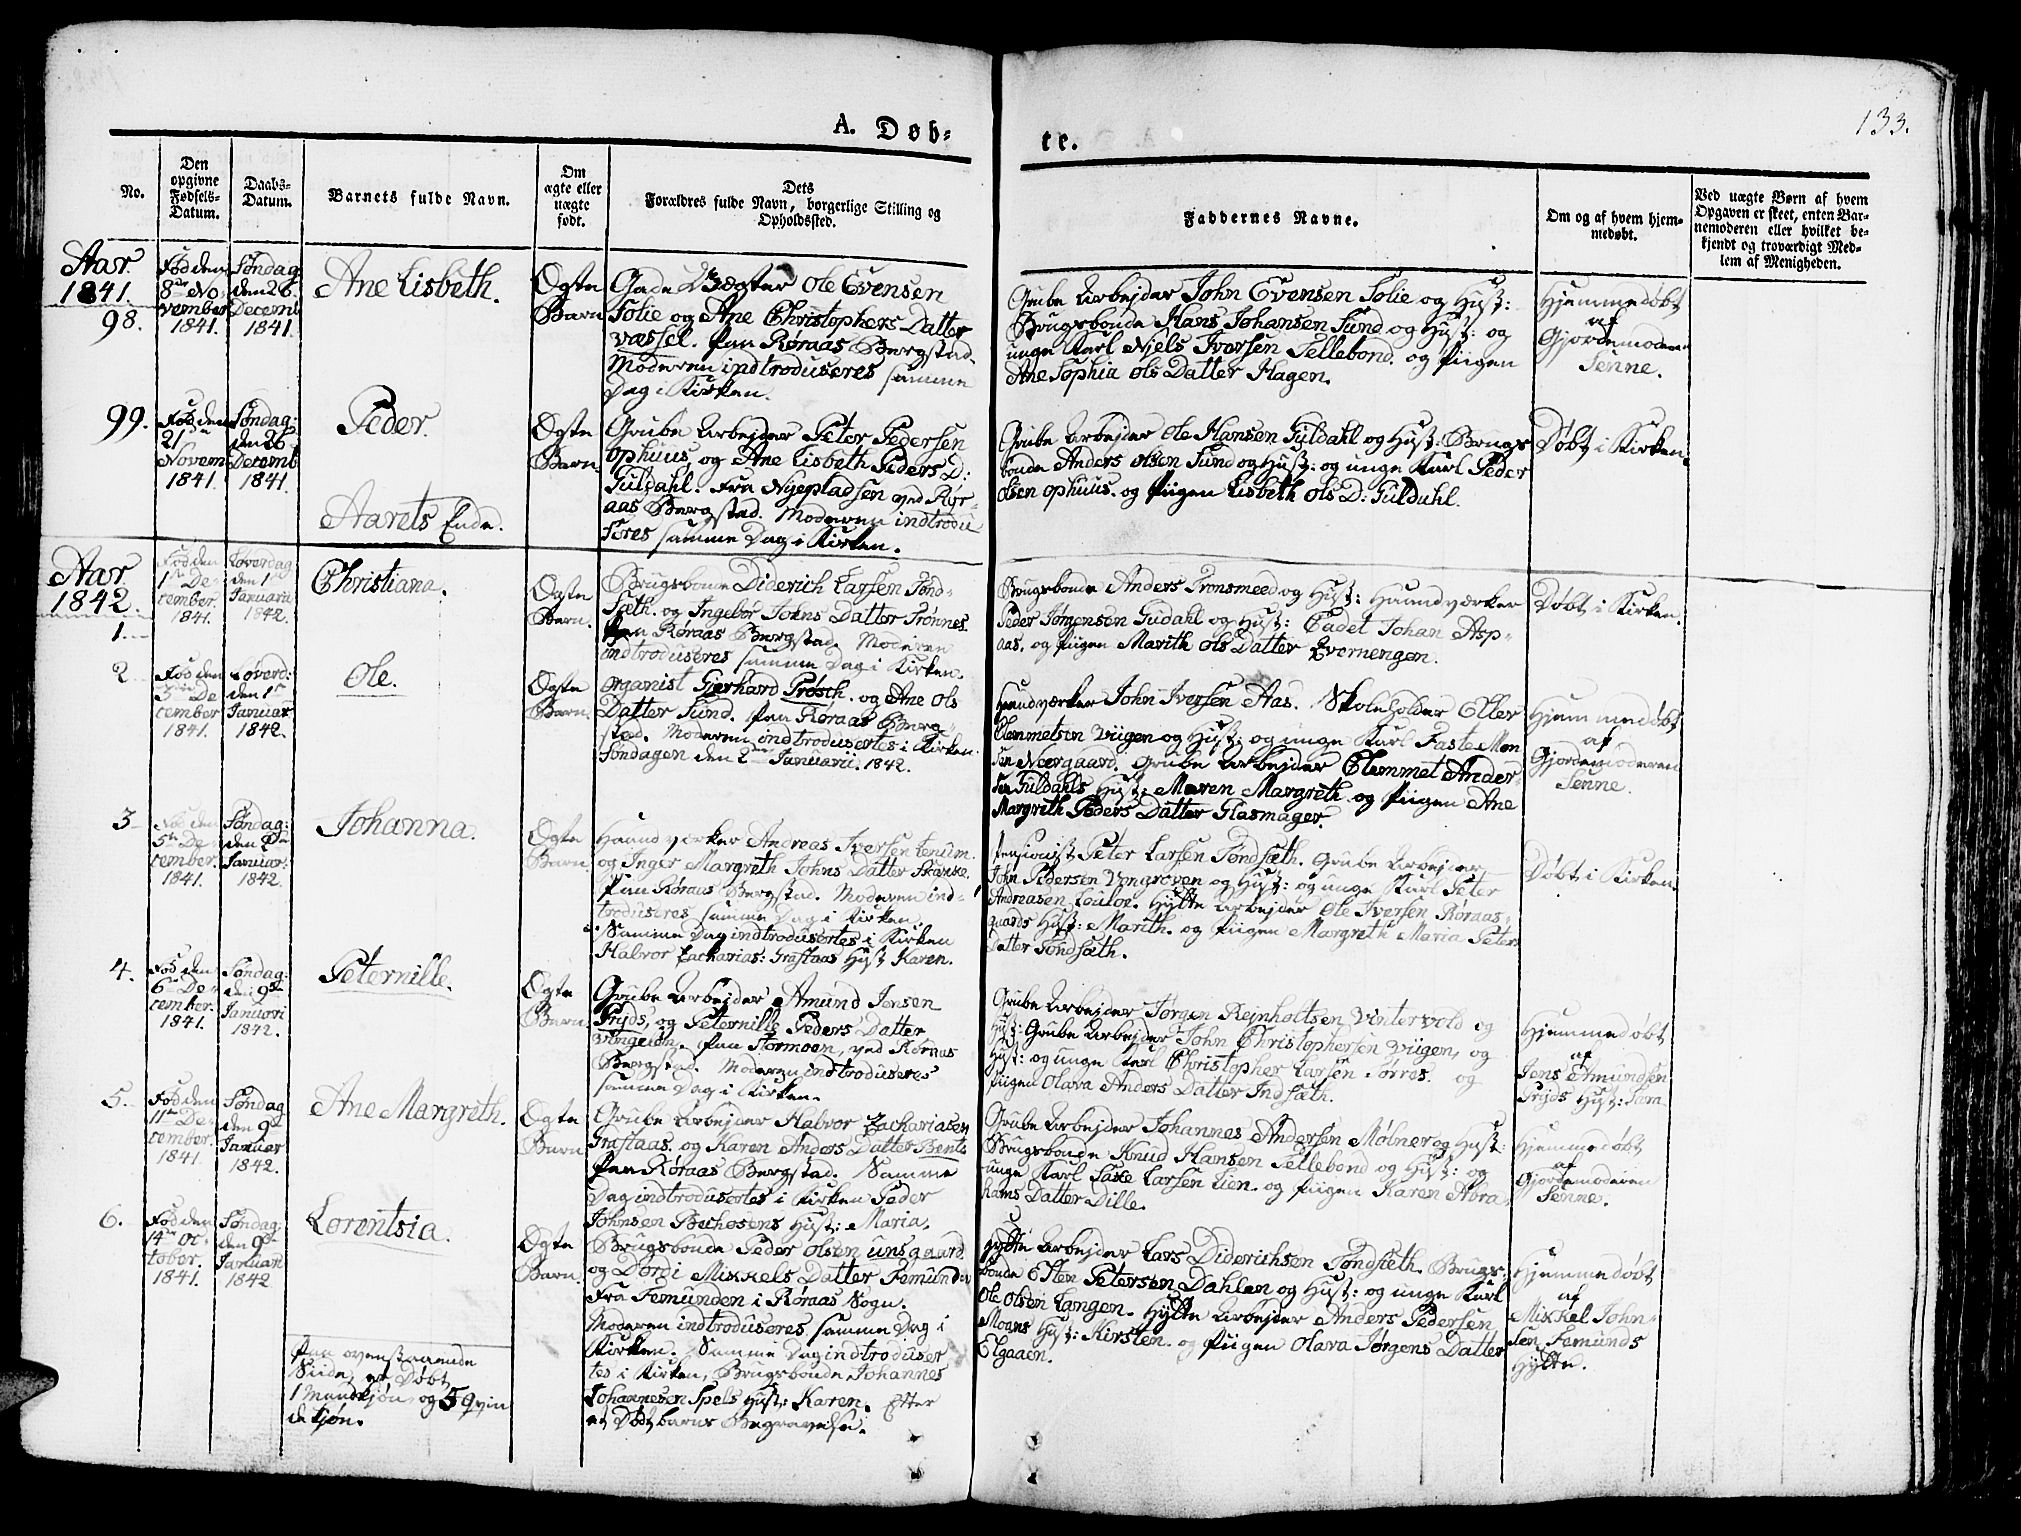 133.
A. Døb-
te.
No.
Den
opgivne
Fødsels-
Datum.
Daabs-
Datum.
Barnets fulde Navn.
Om
ægte eller
uægte
født.
Dets
Forældres fulde Navn, borgerlige Stilling og
Opholdssted.
Faddernes Navne.
Om og af hvem hjem-
medøbt.
Ved uægte Børn af hvem
Opgaven er skeet, enten Bar-
nemoderen eller hvilket be-
kjendt og troværdigt Med-
lem af Menigheden.
Aar.
1841.
98.
Fød den
8de No-
vember
1841.
Søndag
den 26
Decemb
1841.
Ane Lisbeth.
Ægte
Barn
Gade Vægter Ole Evensen
Solie og Ane Christophers Datter
Vassel. Paa Røraas Bergstad.
Moderen indtroduseres samme
Dag i Kirken.
Grube Arbejder John Evensen Solie og Hust:
Brugsbonde Hans Johansen Sund og Hust: og
unge Karl Niels Iversen Sellebond. og Piigen
Ane Sophia Ols Datter Hagen.
Hjemmedøbt
af
Gjordemoderen
Senne.
99.
Fød den
21de
Novem
1841.
Søndag:
den 26
Decemb
1841.
Peder.
Ægte
Barn
Grube Arbejder Peter Pedersen
Ophuus, og Ane Lisbeth Peders D:
Guldahl. Fra Nyepladsen ved Rør-
aas Bergstad. Moderen indtrodu
seres samme Dag i Kirken.
Grube Arbejder Ole Hansen Guldahl og Hust: Brugs
bonde Anders Olsen Sund og Hust: og unge Karl Peder
Olsen Ophuus. og Piigen Lisbeth Ols D: Guldahl.
Døbt i Kirken.
Aarets Ende.
Aar.
1842.
1.
Fød den
1ste De-
cember.
1841.
Løverdag
den 1ste
Januari
1842.
Christiana.
Ægte
Barn.
Brugsbonde Diderich Larsen Tønd-
sæth. og Ingebor Johns Datter Trønnes.
Paa Røraas Bergstad. Moderen
indtroduseres samme Dag i Kirken.
Brugsbonde Anders Tronsmeed og Hust: Haandværker
Peder Jørgensen Gudahl og Hust: Cadet Johan Asp-
aas, og Piigen Marith Ols Datter Evernengen.
Døbt i Kirken.
2
Fød den
De-
cember
1841.
Løverd:
den 1ste
Januar
1842.
Ole.
Ægte
Barn.
Organist Gerhard Prøsch. og Ane Ols
Datter Sund. Paa Røraas Berg-
stad. Moderen indtrodusertes i Kirken
Søndagen den 2den Januarii. 1842.
Haandværker John Iversen Aas. Skoleholder Eller
Clemmetsen Viigen og Hust: og unge Karl Faste Mon
sen Neergaard. Grube Arbejder Clemmet Ander
sen Guldahls Hust: Maren Margreth og Piigen Ane
Margreth Peders Datter Glasmager.
Hjemmedøbt
af
Gjordemoderen
Senne.
3
Fød den
5te De-
cember.
1841.
Søndag:
den 2den
Januar.
1842.
Johanna.
Ægte
Barn.
Haandværker Andreas Iversen Lenum.
og Inger Margreth Johns Datter Skanke.
Paa Røraas Bergstad. Moderen ind-
troduseres samme Dag i Kirken.
Samme Dag indtrodusertes i Kirken
Halvor Zacharias: Grastaas Hust Karen.
Pensionist Peter Larsen Tøndsæth. Grube Arbejder
John Pedersen Vongroven og Hust: og unge Karl Peter
Andreasen Loulor. Hytte Arbejder Ole Iversen Røraas-
gaards Hust: Marith. og Piigen Margreth Maria Peters
Datter Tøndsæth.
Døbt i Kirken.
4.
Fød den
6te De-
cember.
1841.
Søndag:
den 9de
Januari
1842.
Peternille.
Ægte
Barn.
Grube Arbejder Amund Jensen
Pryds, og Peternille Peders Datter
Vingeløn. Paa Stormoen, ved Rørnas
Bergstad. Moderen indtroduseres
samme Dag i Kirken.
Grube Arbejder Jørgen Rejnholtsen Vintervold og
Hust: Grube Arbejder John Christophersen Viigen, og
Hust: og unge Karl Christopher Larsen Sorres. og
Piigen Olava Anders Datter Indsæth.
Hjemmedøbt
af
Jens Amundsen
Pryds Hust: Sara
5.
Fød den
11te De-
cember.
1841.
Søndag
den 9de
Januar
1842.
Ane Margreth.
Ægte
Barn
Grube Arbejder Halvor Zachariasen
Grastaas. og Karen Anders Datter Bents
Paa Røraas Bergstad. Samme
Dag indtrodusertes i Kirken Peder
Johnsen Bechosens Hust: Maria.
Grube Arbejder Johannes Andersen Mølner og Hust:
Brugsbonde Knud Hansen Sellebond og Hust: og
unge Karl Saxe Larsen Lien. og Piigen Karen Abra-
hams Datter Dille.
Hjemmedøbt
af
Gjordemoderen
Senne.
6.
Fød den
14de Oc-
tober.
1841.
Søndag:
den 9de
Januari
1842
Lorentsia.
Ægte
Barn.
Brugsbonde Peder Olsen Unsgaard.
og Dordi Mikkels Datter Femund
Fra Femunden i Røraas Sogn.
Moderen indtroduseres samme Dag i
Kirken. Samme Dag indtroduser
tes i Kirken, Brugsbonde Johannes
Johannesen Spels Hust: Karen. Efter
et Død barns Begravelse.
Hytte Arbejder Lars Diderichsen Tøndseth. Brugs-
bonde Esten Petersen Dahlen og Hust: og unge Karl
Ole Olsen Langen. Hytte Arbejder Anders Pedersen
Moans Hust: Kirsten. og Piigen Olava Jørgens Datter
Elgaaen.
Hjemmedøbt
af
Mikkel John-
sen Femunds
Hytte.
Paa ovenstaaende
Siide, er Døbt
1 Mandkjøn, og 5 Qvin
dekjøn.